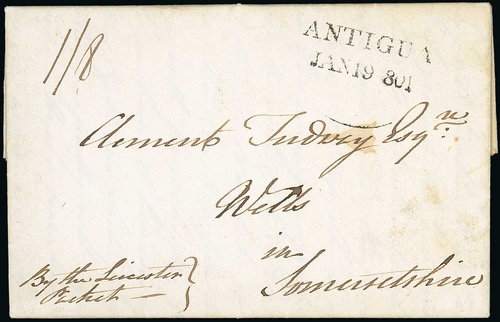 1/8
ANTIGUA
JAN 19 801
Clement Tudway Esqr.
Wells
in
Somersetshire
By the Leicester
Packet